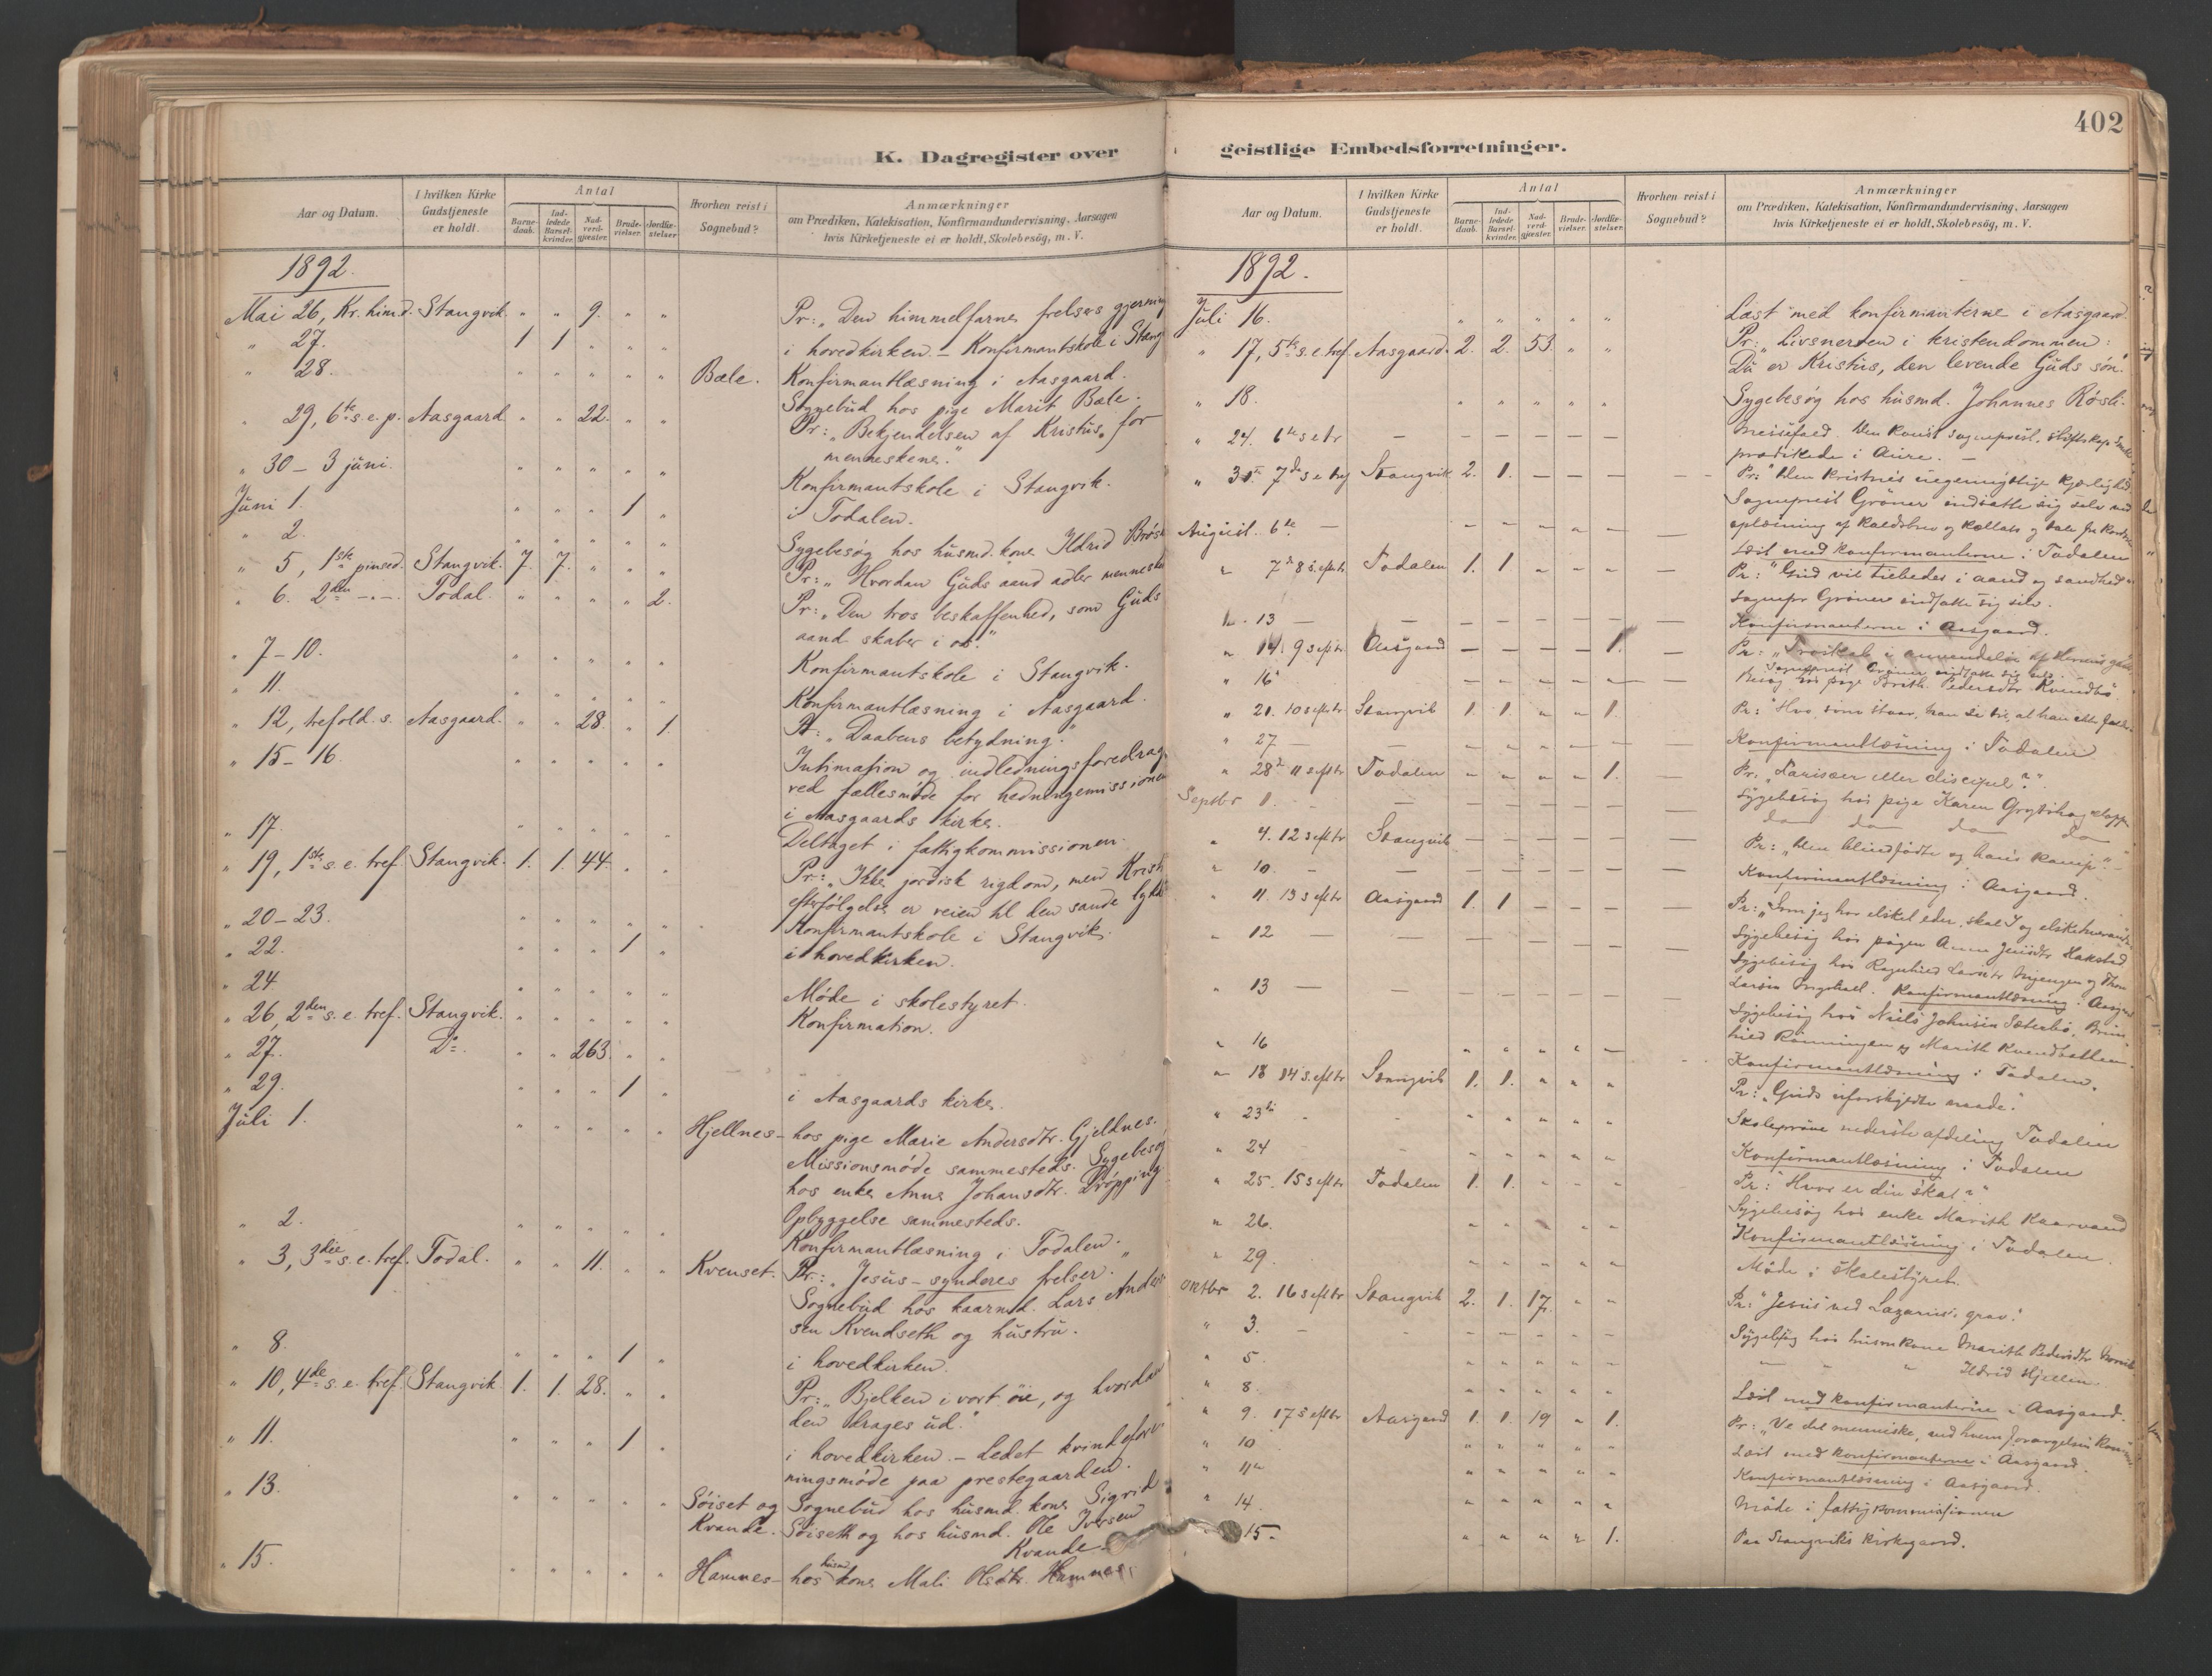 402
K. Dagregister over
Aar og Datum. I hvilken Kirke Gudstjeneste er holdt. Antal Barnedaab. Indledede Barselkvinder. Nadverdgjæster. Brudevielser. Jordfæstelser. Hvorhen reist i Sognebud? Anmærkninger om Prædiken, Katekisation, Konfirmandundervisning, Aarsagen hvis Kirketjeneste ei er holdt, Skolebesög, m. V.
1892.
Mai 26, Kr. him.d. Stangvik. " " 9. " " Pr: "Den himmelfarnes frelsers gjerning
" 27. 1 1 " " " i hovedkirken. - Konfirmantskole i Stang
" 28. " " " " " Bæle. Konfirmantlæsning i Aasgaard.
Sognebud hos pige Marit Bæle.
" 29, 6te s. e. p. Aasgaard. " " 22. " " Pr: "Bekjendelsen af Kristus, for
menneskene."
" 30 - 3 juni. " " " " " Konfirmantskole i Stangvik.
Juni 1. " " " 1 " i Todalen.
" 2. " " " " " Sygebesøg hos husmd. kone Ildrid
" 5, 1ste pinsed. Stangvik. 7. 7. " " " Pr: "Hvordan Guds aand adler menneske
" 6. 2den -.-. Todal. " " " " 2. Pr: "Den tros beskaffenhed, som Guds
aand skaber i os."
" 7-10. " " " " " Konfirmantskole i Stangvik.
" 11. " " " " " Konfirmantlæsning i Aasgaard.
" 12, trefold. s. Aasgaard. " " 28. " 1. Pr: "Daabens betydning."
" 15-16. " " " " " Intimation og indledningsforedrag
ved fællesmøde for hedningemissionen
i Aasgaards kirke.
" 17. " " " " " Deltaget i fattigkommissionen.
" 19, 1ste s. e. tref. Stangvik. 1. 1. 44. " " Pr: "Ikke jordisk rigdom, men Kristi
efterfølgelse er veien til den sande lykke
" 20-23. " " " " " Konfirmantskole i Stangvik.
" 22. " " " 1 " i hovedkirken.
" 24. " " " " " Møde i skolestyret.
" 26, 2den s. e. tref. Stangvik. " " " " " Konfirmation.
" 27. Do. " " 263. " "
" 29. " " " 1 " i Aasgaards kirke.
Juli 1. " " " " " Hjellnes- hos pige Marie Andersdtr. Gjeldnes.
Missionsmøde sammesteds. Sygebesøg
hos enke Anne Johansdtr. Drøpping
Opbyggelse sammesteds.
" 2. " " " " " Konfirmantlæsning i Todalen.
" 3, 3die s. e. tref. Todal. " " 11. " " Kvenset. Pr: "Jesus - synderes frelser."
Sognebud hos kaarmd. Lars Ander
sen Kvendseth og hustru.
" 8. " " " 1 " i hovedkirken.
" 10, 4de s. e. tref. Stangvik. 1. 1. 28. " " Pr: "Bjelken i vort øie, og hvordan
den drages ud."
" 11. " " " 1 " i hovedkirken. - Ledet kvindefore
ningsmøde paa prestegaarden.
" 13. " " " " " Søiset og Sognebud hos husmd. kone Sigrid
Kvande. Søiseth og hos husmd. Ole Iversen
Kvande.
" 15. " " " " " Hamnes- hos husmd kone Mali Olsdtr. Hamnes.
geistlige Embedsforretninger.
Aar og Datum. I hvilken Kirke Gudstjeneste er holdt. Antal Barnedaab. Indledede Barselkvinder. Nadverdgjæster. Brudevielser. Jordfæstelser. Hvorhen reist i Sognebud? Anmærkninger om Prædiken, Katekisation, Konfirmandundervisning, Aarsagen hvis Kirketjeneste ei er holdt, Skolebesög, m. V.
1892.
Juli 16. " " " " " Læst med konfirmanterne i Aasgaard.
" 17, 5te s. e. tref. Aasgaard. 2. 2. 53. " " Pr: "Livsnerven i kristendommen:
Du er Kristus, den levende Guds søn."
" 18. " " " " " Sygebesøg hos husmd. Johannes Røsli.
" 24. 6te s e tr - - - - - - Messefald. Den konst. sogneprest, stiftskap.
prædikede i Aure. -
" 31. 7de s e tr Stangvik 2. 1. - - - Pr: "Den kristnes uegennyttige kjærlighed
Sogneprest Grøner indsatte sig selv med
oplæsning af kaldsbrev og
August. 6te - - - - - - Læst med konfirmanterne i Todalen
" 7de 8 s. e tr Todalen 1. 1. " - - Pr: "Gud vil tilbedes i aand og sandhed"
Sognepr Grøner indsatte sig selv.
" 13 - - - - - - Konfirmanterne i Aasgaard.
" 14. 9 s eft tr Aasgaard - - - - 1. - Pr: "Troskab i anvendelse af Herrens
Sogneprest Grøner indsatte sig selv.
" 16 - - - - - Besøg hos pige Berith Pedersdtr Kvendbø
" 21. 10 s eft tr Stangvik 1. 1. " " 1. Pr: "Hvo, som staar, han se til, at han ikke
" 27 - - - - - - Konfirmantlæsning i Todalen
" 28de 11 s eft tr Todalen " " " " 1. - Pr: "Farisæer eller discipel?"
Septbr 1. - - - - - - Sygebesøg hos pige Karen
do do do do
" 4. 12 s eft tr Stangvik - - - - - Pr: "Den blindfødte og hans kamp." -
" 10. - - - - - - Konfirmantlæsning i Aasgaard.
" 11. 13 s eft tr Aasgaard 1. 1 - - - - Pr: "Som jeg har elsket eder, skal I og elske hverandre
" 12 - - - - - - Sygebesøg hos pigen Anne Jensdtr Hakstad
Sygebesøg hos Ragnhild Larsdtr
Larsen Konfirmantlæsning i Aasgaard
" 13 - - - - - - Sygebesøg hos Niels Johnsen Sæterbø, Bryn
hild Rønningen og Marith Kvendsethun.
" 16 " " " " - Konfirmantlæsning i Todalen.
" 18 14 s. eft tr Stangvik 1. 1. " " " Pr: "Guds uforskyldte naade."
" 23de " " " " " Skoleprøve nederste afdeling Todalen
" 24 " " " " " Konfirmantlæsning i Todalen
" 25. 15 s eft tr Todalen 1. 1. " " " Pr: "Hvor er din skat?"
" 26. " " " " " Sygebesøg hos enke Marith Kaarvand
Konfirmantlæsning i Todalen.
" 29. " " " " " Møde i skolestyret.
Oktbr 2. 16 s eft tr Stangvik 2. 1. 17. " " Pr: "Jesus ved Lazarus's grav."
" 3. - - - - - - Sygebesøg hos husm kone Marith Pedersdtr
" 5. " " " " " — " " Ildrid Hjellen.
" 8. " " " " " Læst med konfirmanterne i Aasgaard.
" 9. 17 s eft tr Aasgaard 1. 1. 19 " 1. Pr: "Ve det menneske, ved hvem forargelsen kommer
" 10 " " " " " Læst med konfirmanterne i Aasgaard.
" 11te " " " " " Konfirmantlæsning i Aasgaard.
" 14. " " " " " Møde i fattigkommissionen
15. " " " " 1. Paa Stangviks kirkegaard.